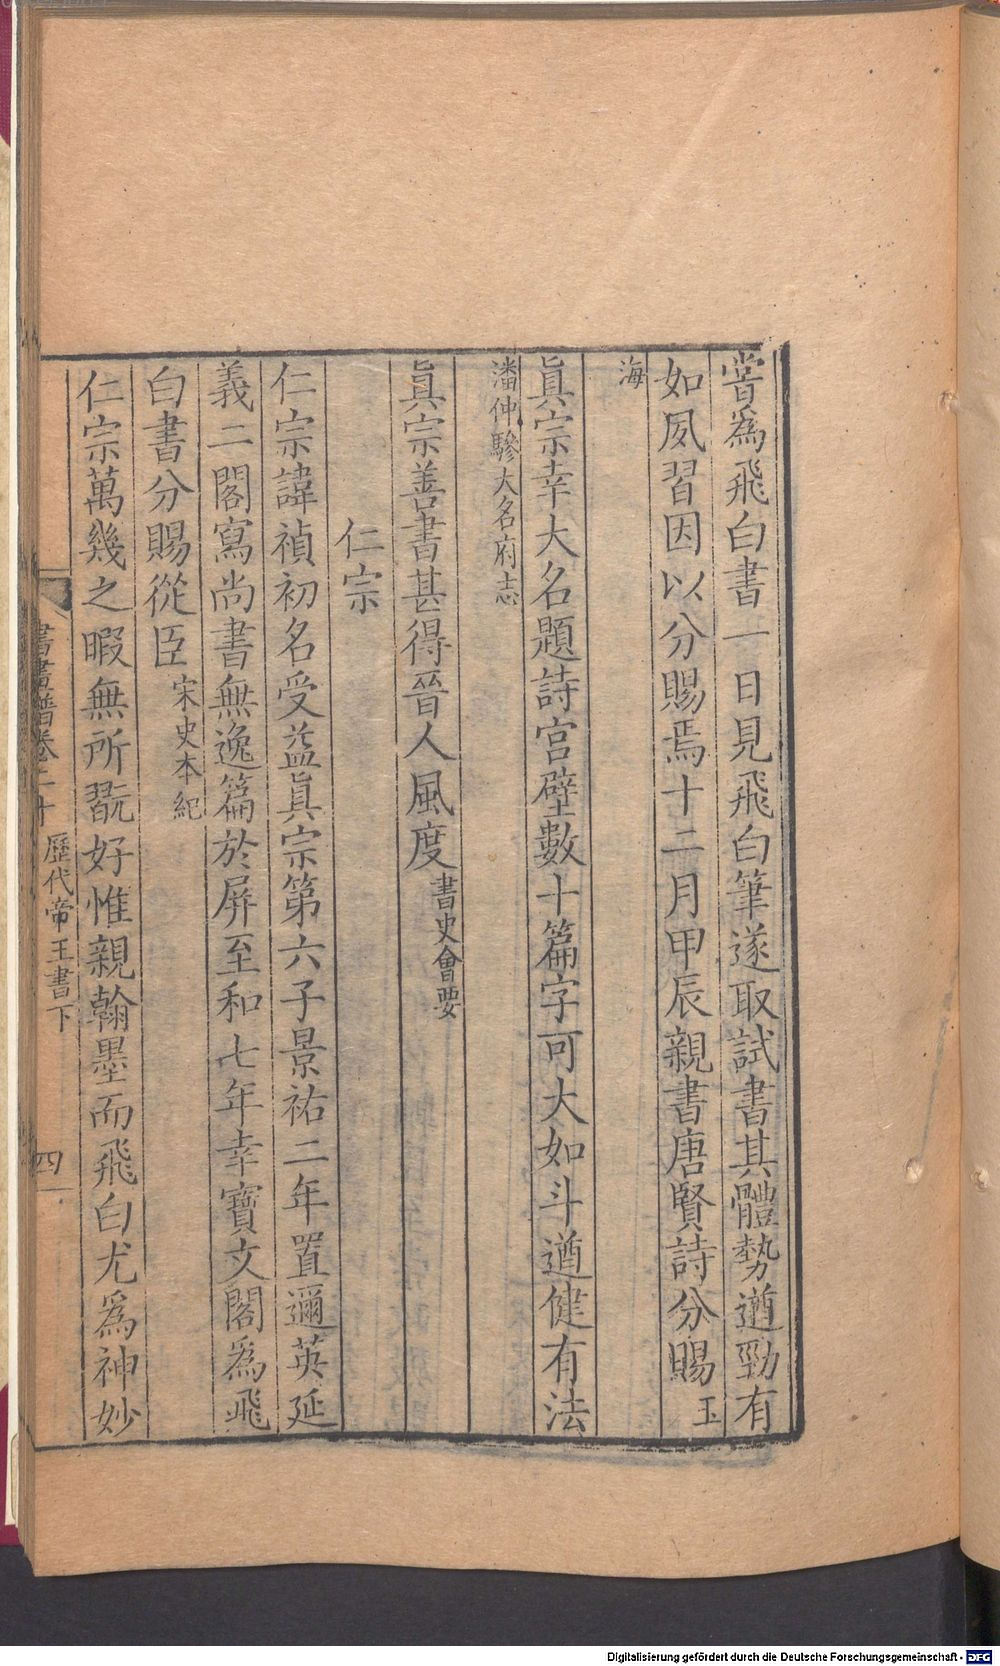 嘗爲飛白書一日見飛白筆遂取試書其體勢遒勁有
如夙習因以分賜焉十二月甲辰親書唐賢詩分賜玉
海
眞宗幸大名題詩宮壁數十篇字可大如斗遒健有法
潘仲驂大名府志
眞宗善書甚得晉人風度書史會要
仁宗
仁宗諱禎初名受益眞宗第六子景祐二年置邇英延
義二閣寫尚書無逸篇於屏至和七年幸寶文閣爲飛
白書分賜從臣宋史本紀
仁宗萬幾之暇無所翫好惟親翰墨而飛白尤爲神妙
書畫譜卷二十 歷代帝王書下 四
Digitalisierung gefördert durch die Deutsche Forschungsgemeinschaft - DFG